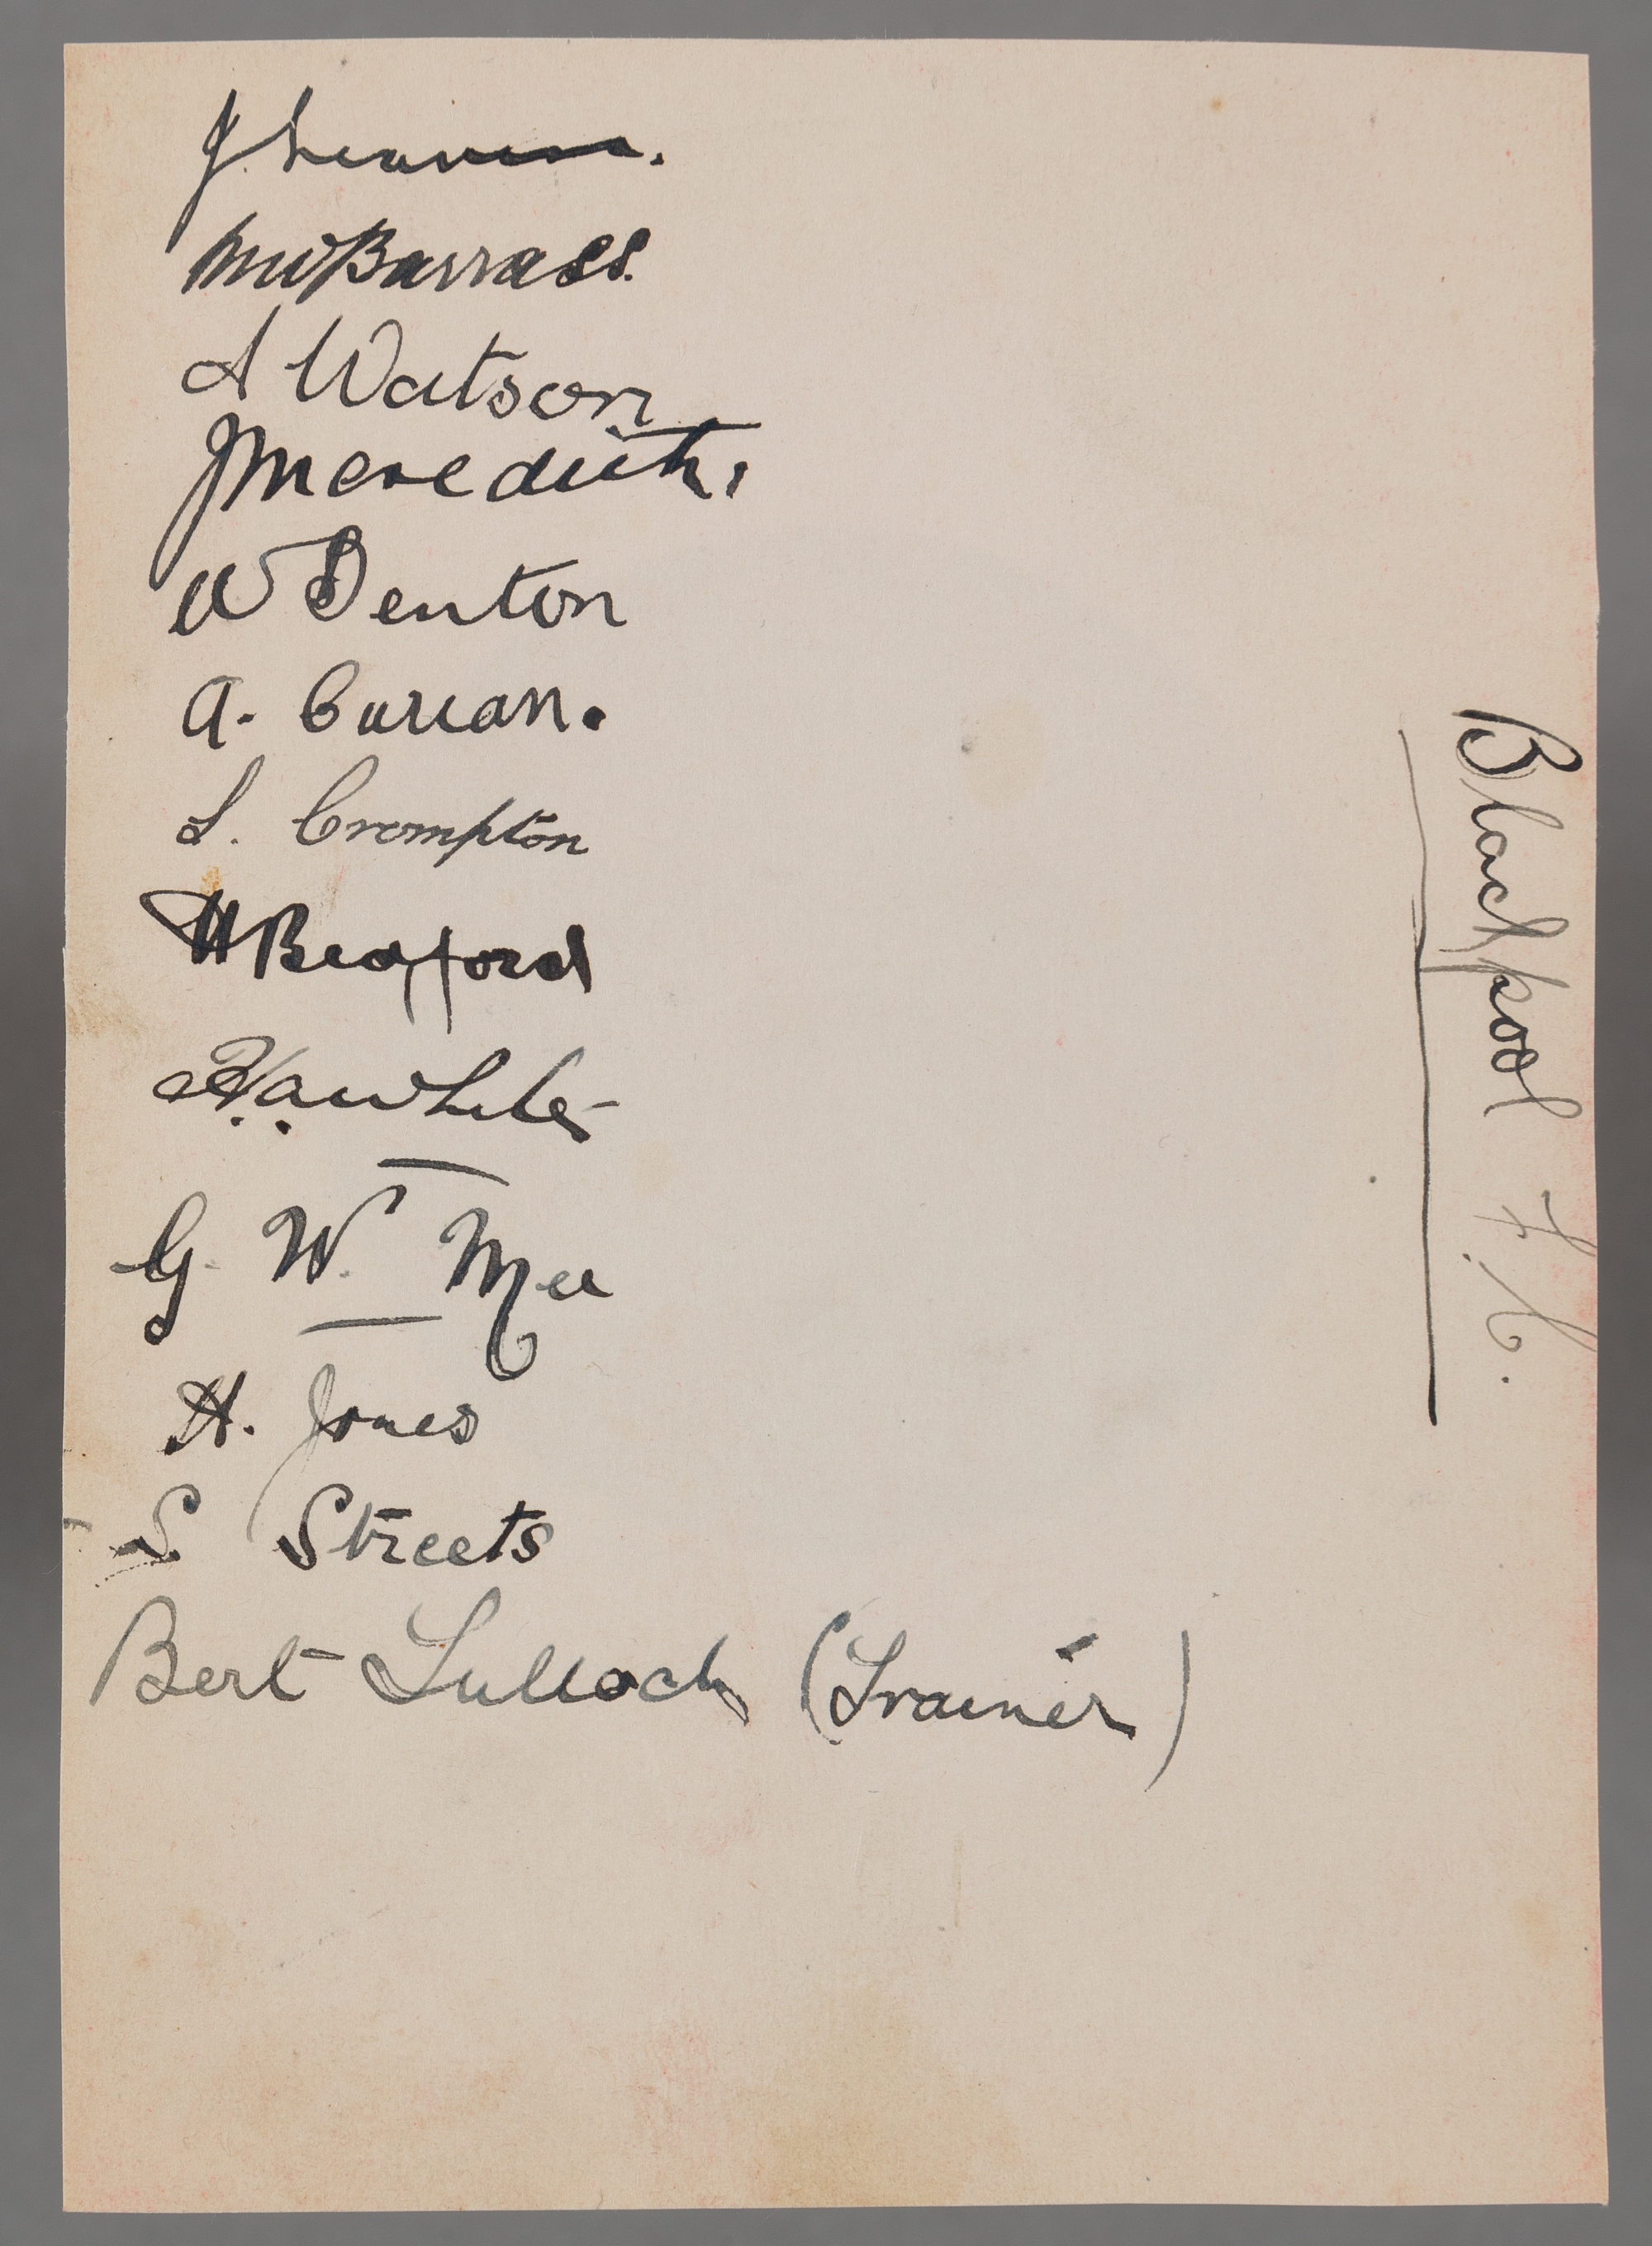 J. Leaver.
M W Barrass.
A Watson
J Meredith.
W Denton
A. Curran.
L. Crompton
H Bedford
H. A. White
G. W. Mee
H. Jones
S Streets
Bert Tulloch (Trainer)
Blackpool F.C.